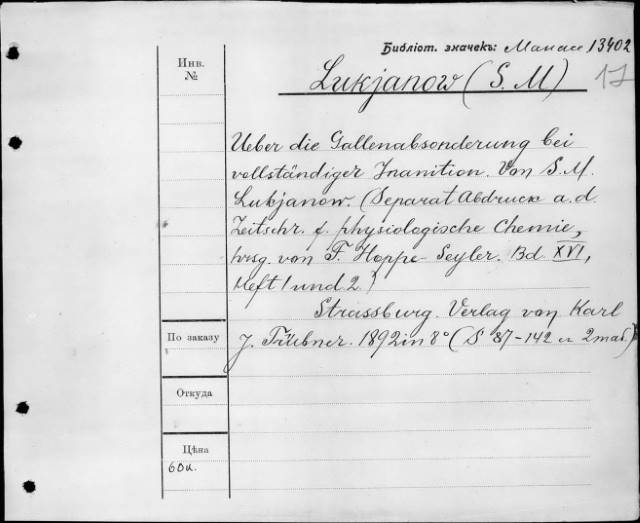 Библіот. значекъ: Манасе 13402
Инв. №
Lukjanow (S. M) 17
Ueber die Gallenabsonderung bei
vollständiger Inanition. Von S. M.
Lukjanow. (Separat Abdruck a. d.
Zeitschr. f. physiologische Chemie,
hrsg. von F. Hoppe-Seyler. Bd. XVI,
Heft 1 und 2.)
Strassburg. Verlag von Karl
По заказу
J. Trübner. 1892 in 8° (S 87-142 и 2 таб.)
Откуда
Цѣна
60к.